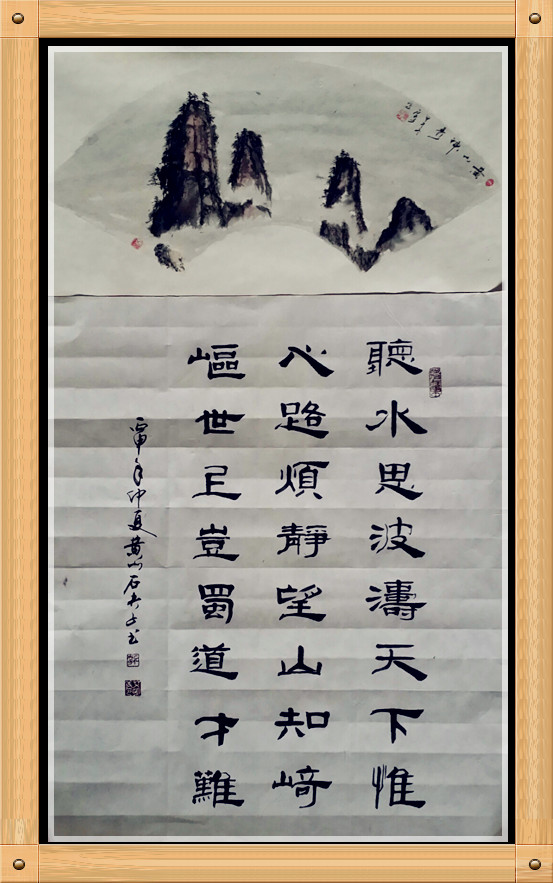 聽水思波濤天下惟
心路煩靜望山知崎
嶇世正豈蜀道才難
年仲夏黄山石书